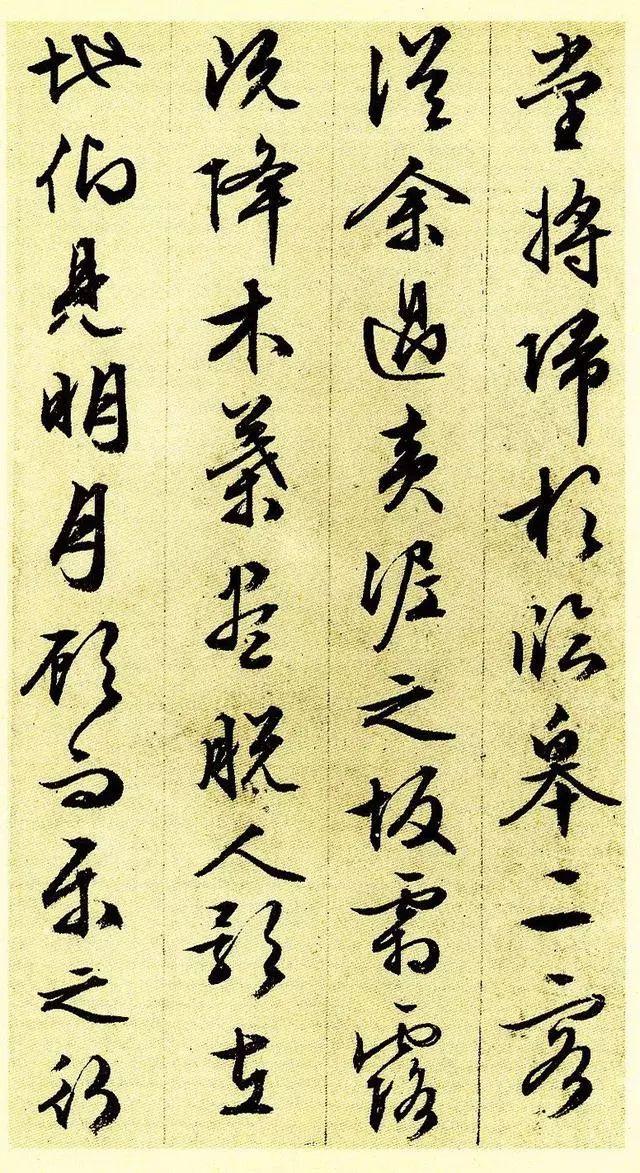 堂将歸於臨皋二客
從余過黄泥之坂霜露
既降木葉盡脱人影在
地仰見明月顧而樂之行